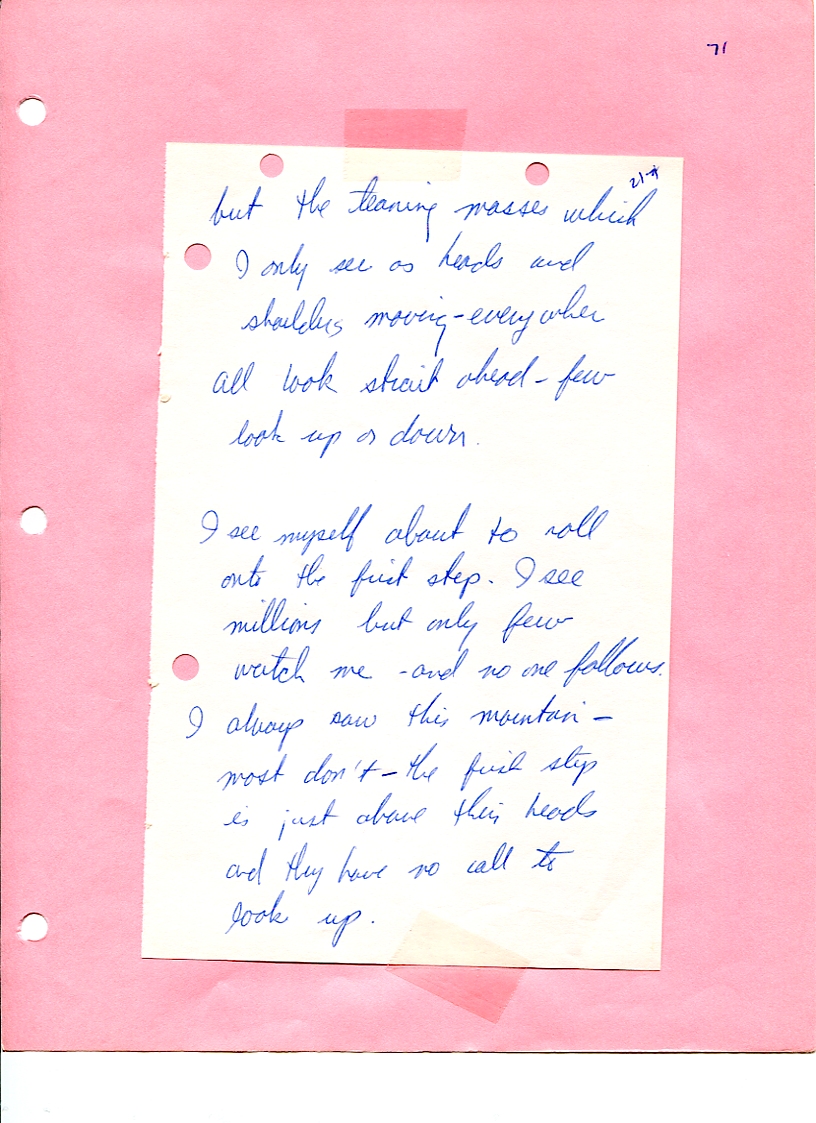 71
but the teaming masses which
I only see as heads and
shoulders moving - everywher
all look strait ahead - few
look up or down.
I see myself about to roll
onto the first step. I see
millions but only few
watch me - and no one follows.
I always saw this mountain -
most don't - the first step
is just above their heads
and they have no call to
look up.